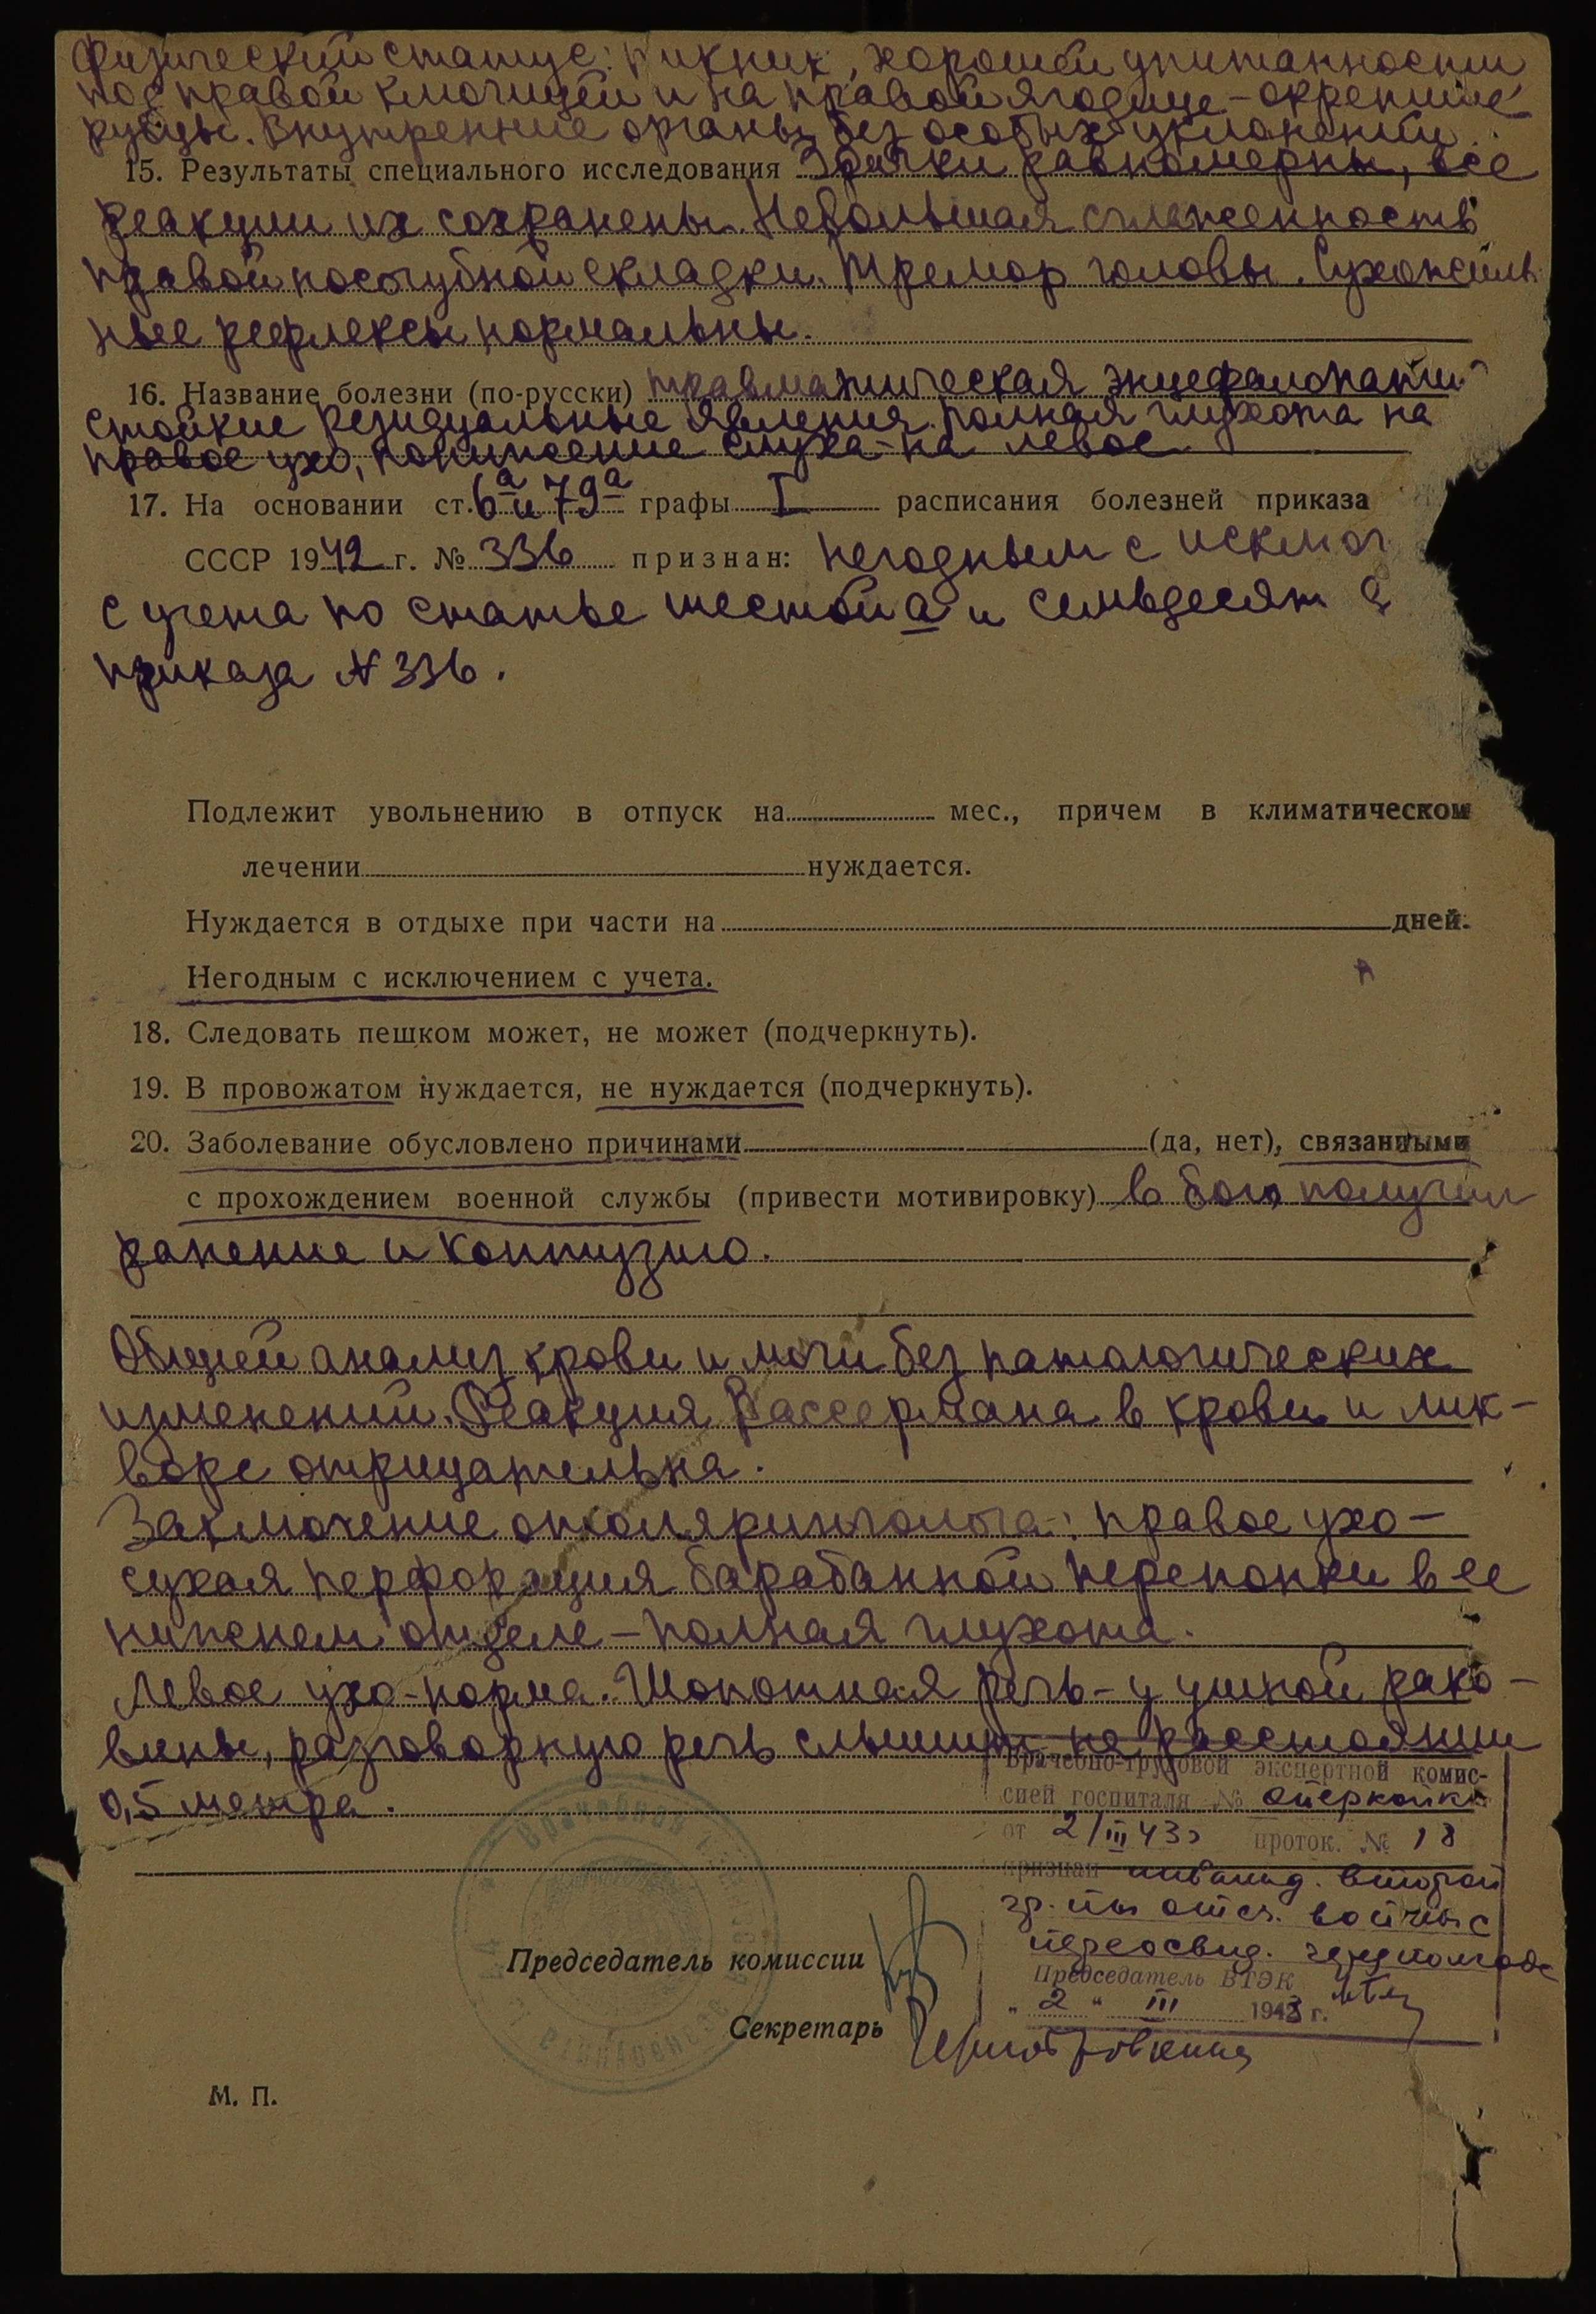 Физический статус: пикник, хорошей упитанности
под правой ключицей и на правой ягодице - окрепшие
рубцы. Внутренние органы без особых уклонений.
15. Результаты специального исследования Зрачки равномерны, все
реакции их сохранены. Небольшая сглаженность
правой носогубной складки. Тремор головы. Сухожиль-
ные рефлексы нормальны.
16. Название болезни (по-русски) травматическая энцефалопатия
стойкие резидуальные явления. полная глухота на
правое ухо, понижение слуха - на левое
17. На основании ст. 6а и 79а графы I расписания болезней приказа
СССР 1942 г. № 336 признан: негодным с исключ
с учета по статье шестой а и семьдесят
приказа N 336.
Подлежит увольнению в отпуск на мес., причем в климатическом
лечении нуждается.
Нуждается в отдыхе при части на дней.
Негодным с исключением с учета.
18. Следовать пешком может, не может (подчеркнуть).
19. В провожатом нуждается, не нуждается (подчеркнуть).
20. Заболевание обусловлено причинами (да, нет), связанными
с прохождением военной службы (привести мотивировку) в бою получил
ранение и контузию.
Общий анализ крови и мочи без патологических
изменений. Реакция Вассермана в крови и лик-
воре отрицательна.
Заключение отоляринголога: правое ухо -
сухая перфорация барабанной перепонки в ее
нижнем отделе - полная глухота.
Левое ухо - норма. Шопотная речь - у ушной рако-
вины, разговорную речь слышит на расстоянии
0,5 метра.
Врачебно-трудовой экспертной комис-
сией госпиталя №
от 2/III 43г проток. № 18
признан инвалид. второй
гр-пы отеч. войны с
переосвид. через полгода
Председатель ВТЭК
" 2 " III 1943 г.
Председатель комиссии
Секретарь
М. П.